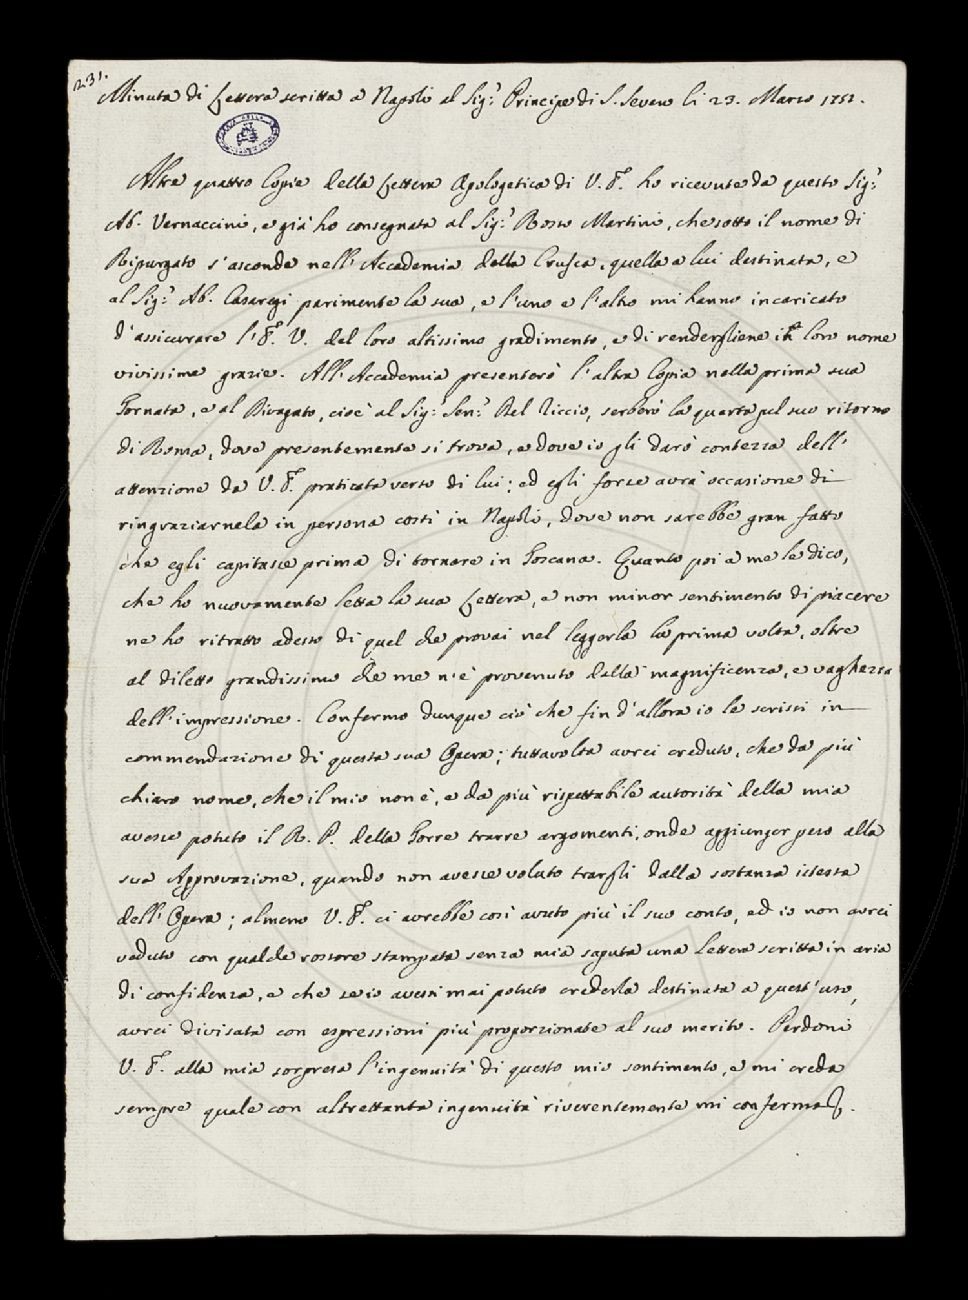 231.
Minuta di Lettera scritta a Napoli al Sig.r Principe di S. Severo li 23. Marzo 1751.
Altre quattro Copie della Lettera Apologetica di V. E. ho ricevute da questo Sig.r
Ab. Vernaccini, e già ho consegnata al Sig.r Rosso Martini, che sotto il nome di
Ripurgato s'asconde nell'Accademia della Crusca, quella a lui destinata, e
al Sig.r Ab. Casaregi parimente la sua, e l'uno e l'altro mi hanno incaricato
d'assicurare l'E. V. del loro altissimo gradimento, e di rendergliene in lor nome
vivissime grazie. All'Accademia presenterò l'altra Copia nella prima sua
Tornata, e al Rivagato, cioè al Sig.r Sen.r Del Riccio, serberò la quarta pel suo ritorno
di Roma, dove presentemente si trova, e dove io gli darò contezza dell'
attenzione da V. E. praticata verso di lui; ed egli forse avrà occasione di
ringraziarnela in persona costì in Napoli, dove non sarebbe gran fatto
che egli capitasse prima di tornare in Toscana. Quanto poi a me le dico,
che ho nuovamente letta la sua Lettera, e non minor sentimento di piacere
ne ho ritratto adesso di quel che provai nel leggerla la prima volta, oltre
al diletto grandissimo che me n'è provenuto dalla magnificenza, e vaghezza
dell'impressione. Confermo dunque ciò che fin d'allora io le scrissi in
commendazione di questa sua Opera; tuttavolta avrei creduto, che da più
chiaro nome, che il mio non è, e da più rispettabile autorità della mia
avesse potuto il R. P. della Torre trarre argomenti, onde aggiunger peso alla
sua Approvazione, quando non avesse voluto trargli dalla sostanza istessa
dell'Opera; almeno V. E. ci avrebbe così avuto più il suo conto, ed io non avrei
veduto con qualche rossore stampata senza mia saputa una Lettera scritta in aria
di confidenza, e che se io avessi mai potuto crederla destinata a quest'uso,
avrei divisata con espressioni più proporzionate al suo merito. Perdoni
V. E. alla mia sorpresa l'ingenuità di questo mio sentimento, e mi creda
sempre quale con altrettanta ingenuità riverentemente mi confermo.